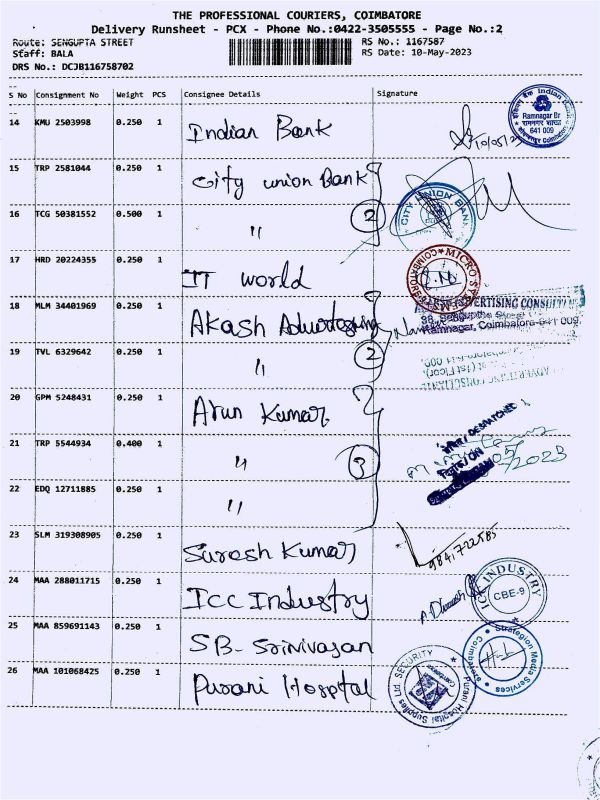 THE PROFESSIONAL COURIERS, COIMBATORE
Delivery Runsheet - PCX - Phone No.:0422-3505555 - Page No.:2
Route: SENGUPTA STREET RS No.: 1167587
Staff: BALA RS Date: 10-May-2023
DRS No.: DCJB116758702
S No Consignment No Weight PCS Consignee Details Signature
14 KMU 2503998 0.250 1 Indian Bank
Ramnagar Br
रामनगर शाखा
641 009
10/05/23
15 TRP 2581044 0.250 1 City union Bank
CITY UNION BANK
16 TCG 50381552 0.500 1 " 2
17 HRD 20224355 0.250 1 IT world
COIMBATORE MICRO
18 MLM 34401969 0.250 1 Akash Advertising
ADVERTISING CONSULTANTS
38, Sengupta Street
Ramnagar, Coimbatore-641 009.
19 TVL 6329642 0.250 1 " 2
20 GPM 5248431 0.250 1 Arun Kumar
21 TRP 5544934 0.400 1 " 3
05/2023
22 EDQ 12711885 0.250 1 "
23 SLM 319308905 0.250 1 Suresh Kumar
9841722585
24 MAA 288011715 0.250 1 ICC Industry
ICC INDUSTRY
CBE-9
25 MAA 859691143 0.250 1 SB- Srinivasan
Strategion Media Services
Coimbatore
26 MAA 101068425 0.250 1 Purani Hosptal
SECURITY
Purani Hospital Supplies Pvt